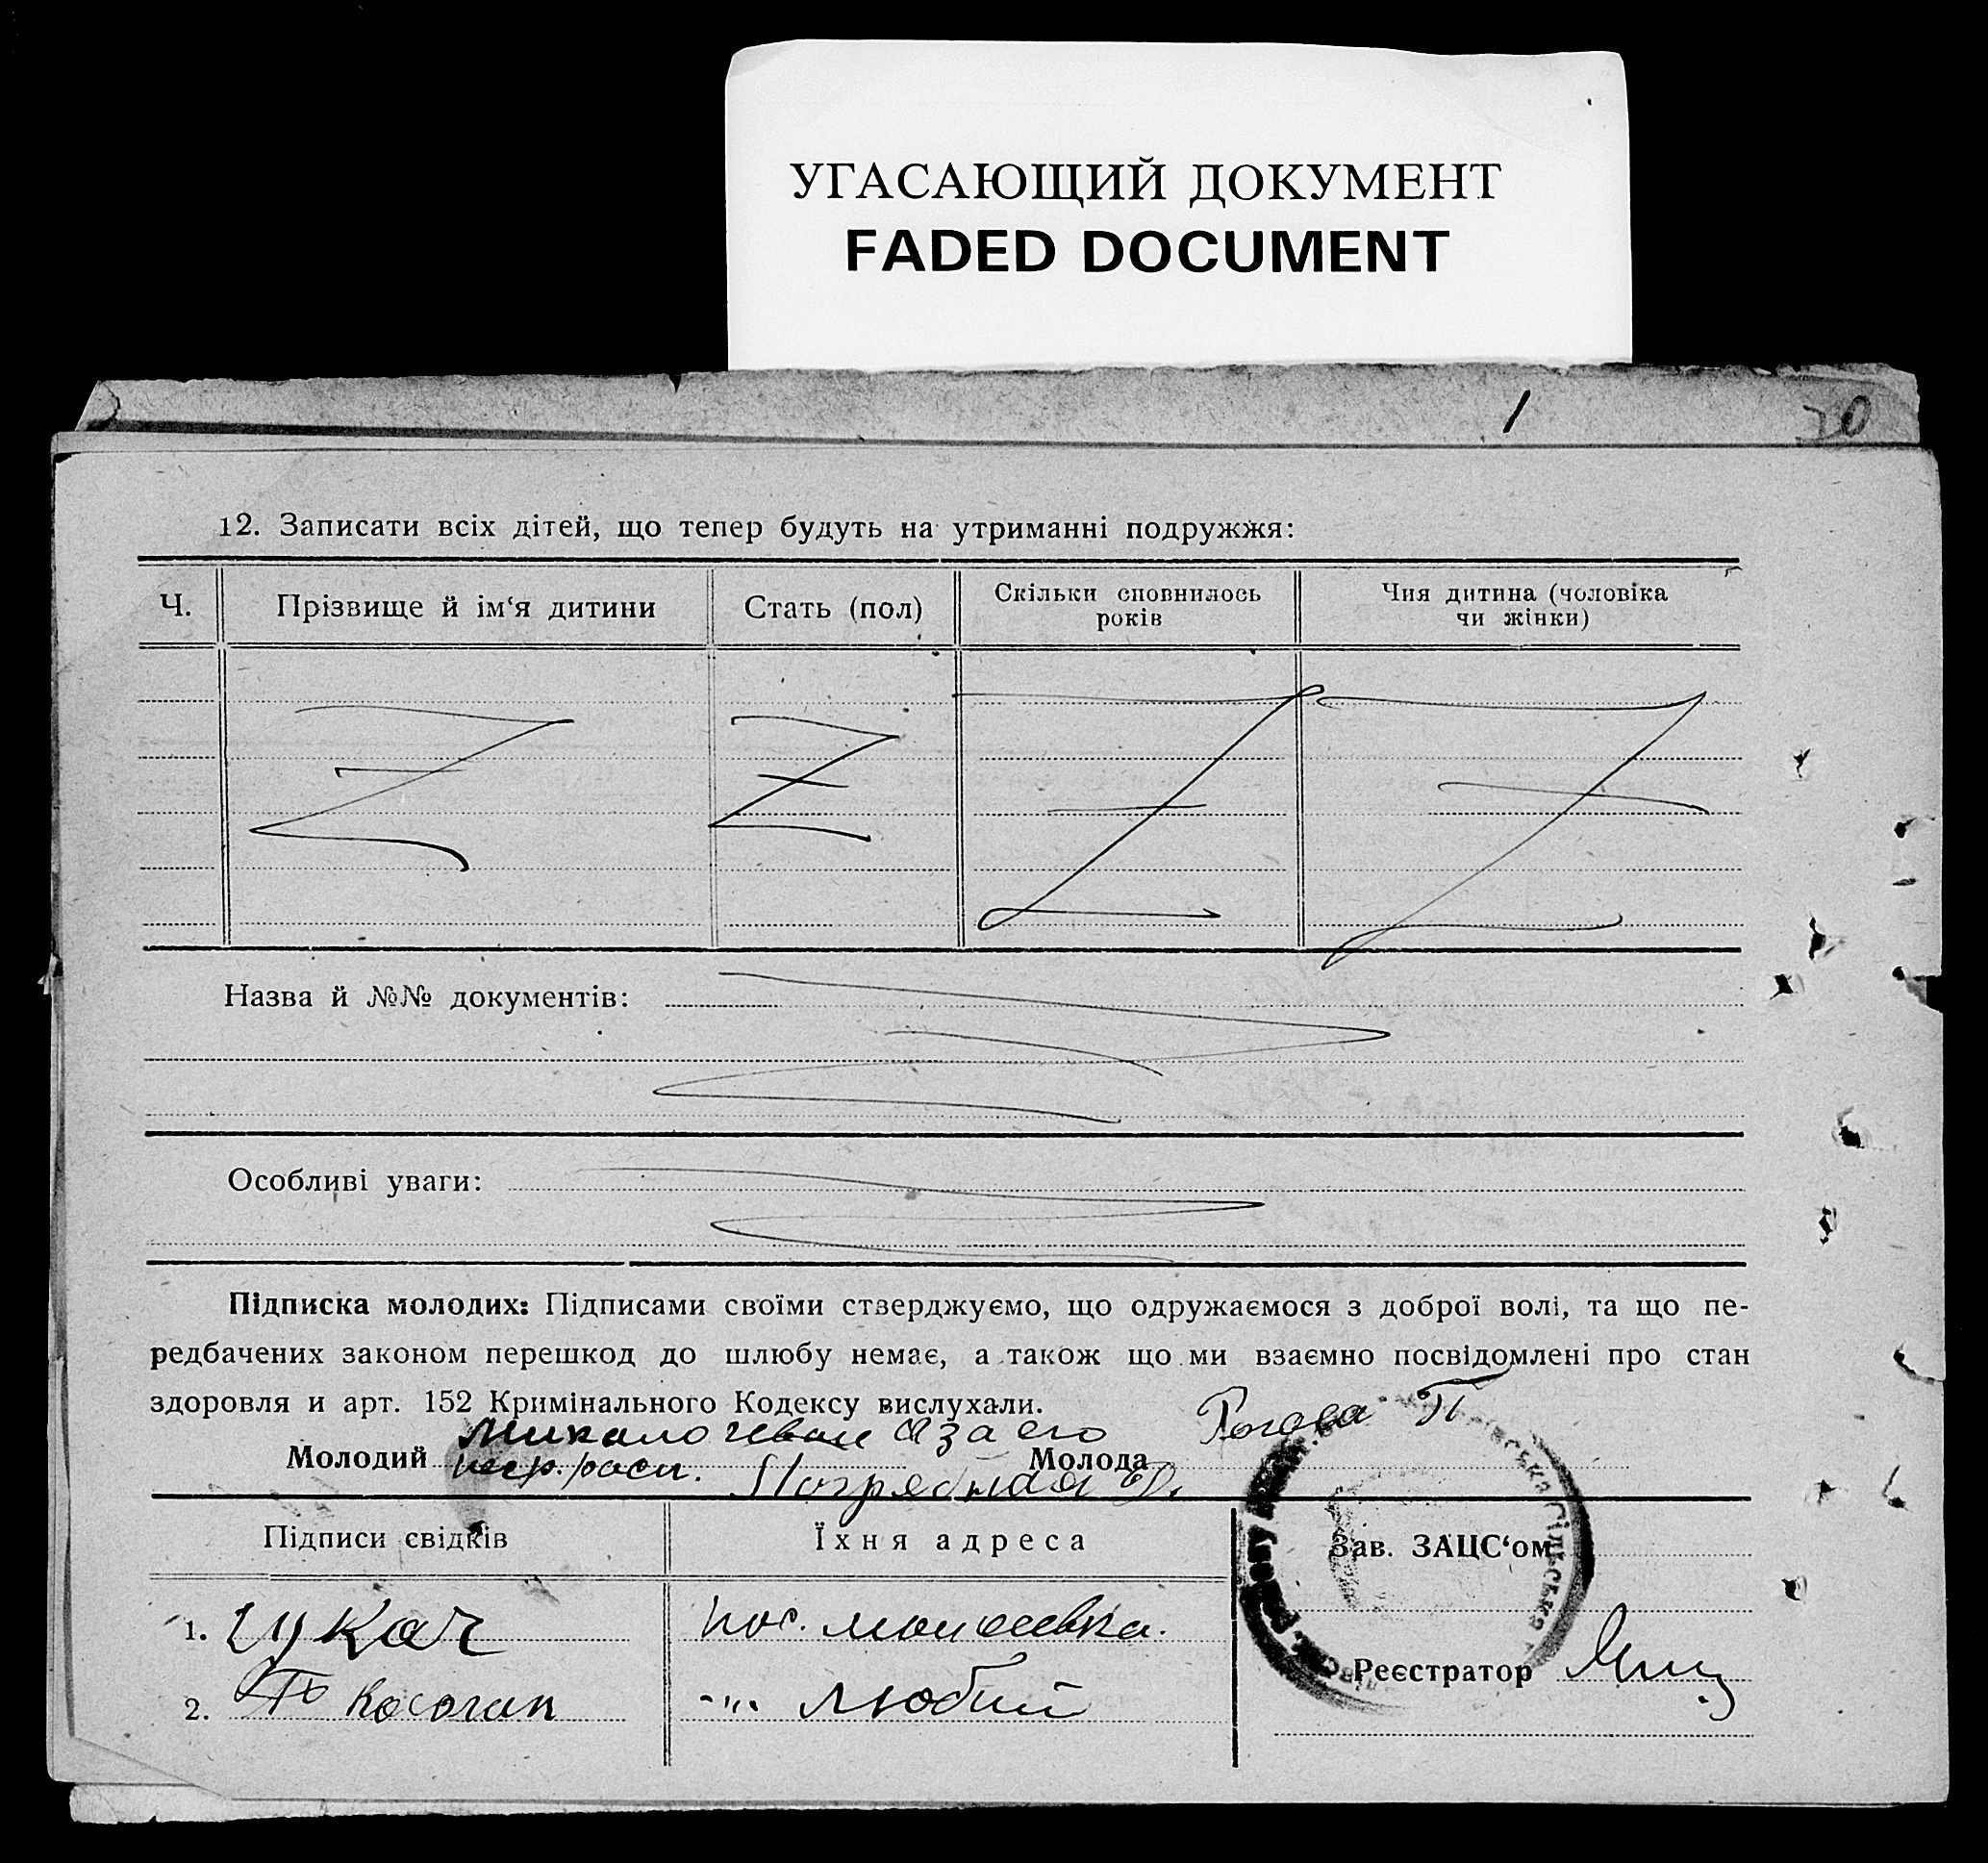 УГАСАЮЩИЙ ДОКУМЕНТ
FADED DOCUMENT
1
20
12. Записати всіх дітей, що тепер будуть на утриманні подружжя:
Ч.
Прізвище й ім‘я дитини
Стать (пол)
Скільки сповнилось
років
Чия дитина (чоловіка
чи жінки)
Назва й №№ документів:
Особливі уваги:
Підписка молодих: Підписами своїми стверджуємо, що одружаємося з доброї волі, та що пе-
редбачених законом перешкод до шлюбу немає, а також що ми взаємно посвідомлені про стан
здоровля и арт. 152 Кримінального Кодексу вислухали.
Рогова П
Молодий
а за его
Молода
Погребная
Підписи свідків
Їхня адреса
Зав. ЗАЦС‘ом
1. Цукач
пос.
Реєстратор
2.
-"- Любий